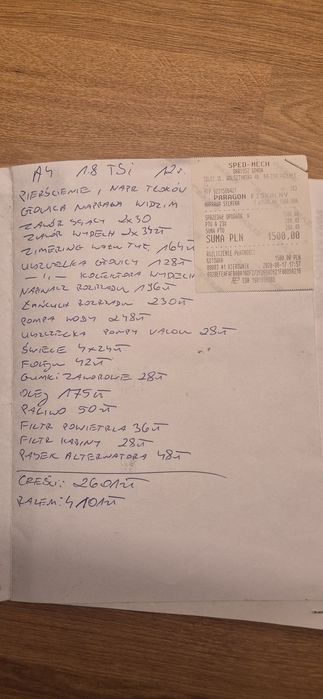 A4 1.8 TSi 12r.
PIERŚCIENIE, NAPR TŁOKÓW
GŁOWICA NAPRAWA WIDZIM
ZAWÓR SSĄCY 2x30
ZAWÓR WYDECH 2x34zł
ZIMERING WAŁU TYŁ 164zł
USZCZELKA GŁOWICY 128zł
-||- KOLEKTORA WYDECH
NAPINACZ ROZRZĄDU 196zł
ŁAŃCUCH ROZRZĄDU 230zł
POMPA WODY 248zł
USZCZELKA POMPY VACUM 28zł
ŚWIECE 4x24zł
42zł
GUMKI ZAWOROWE 28zł
OLEJ 175zł
PALIWO 50zł
FILTR POWIETRZA 36zł
FILTR KABINY 28zł
PASEK ALTERNATORA 48zł
CZĘŚCI: 2601zł
RAZEM: 4101zł
SPED-MECH
PARAGON FISKALNY
SPRZEDAŻ OPODATK. A
PTU A 23%
SUMA PTU
SUMA PLN 1500,00
ROZLICZENIE PŁATNOŚCI
GOTÓWKA 1500,00 PLN